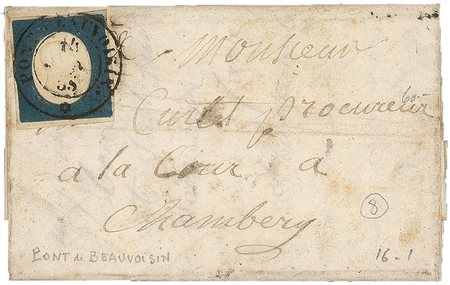 PONT BEAUVOISIN
14
8
Monsieur
Curtet procureur
à la Cour à
Chambery
8
PONT de BEAUVOISIN
16-1